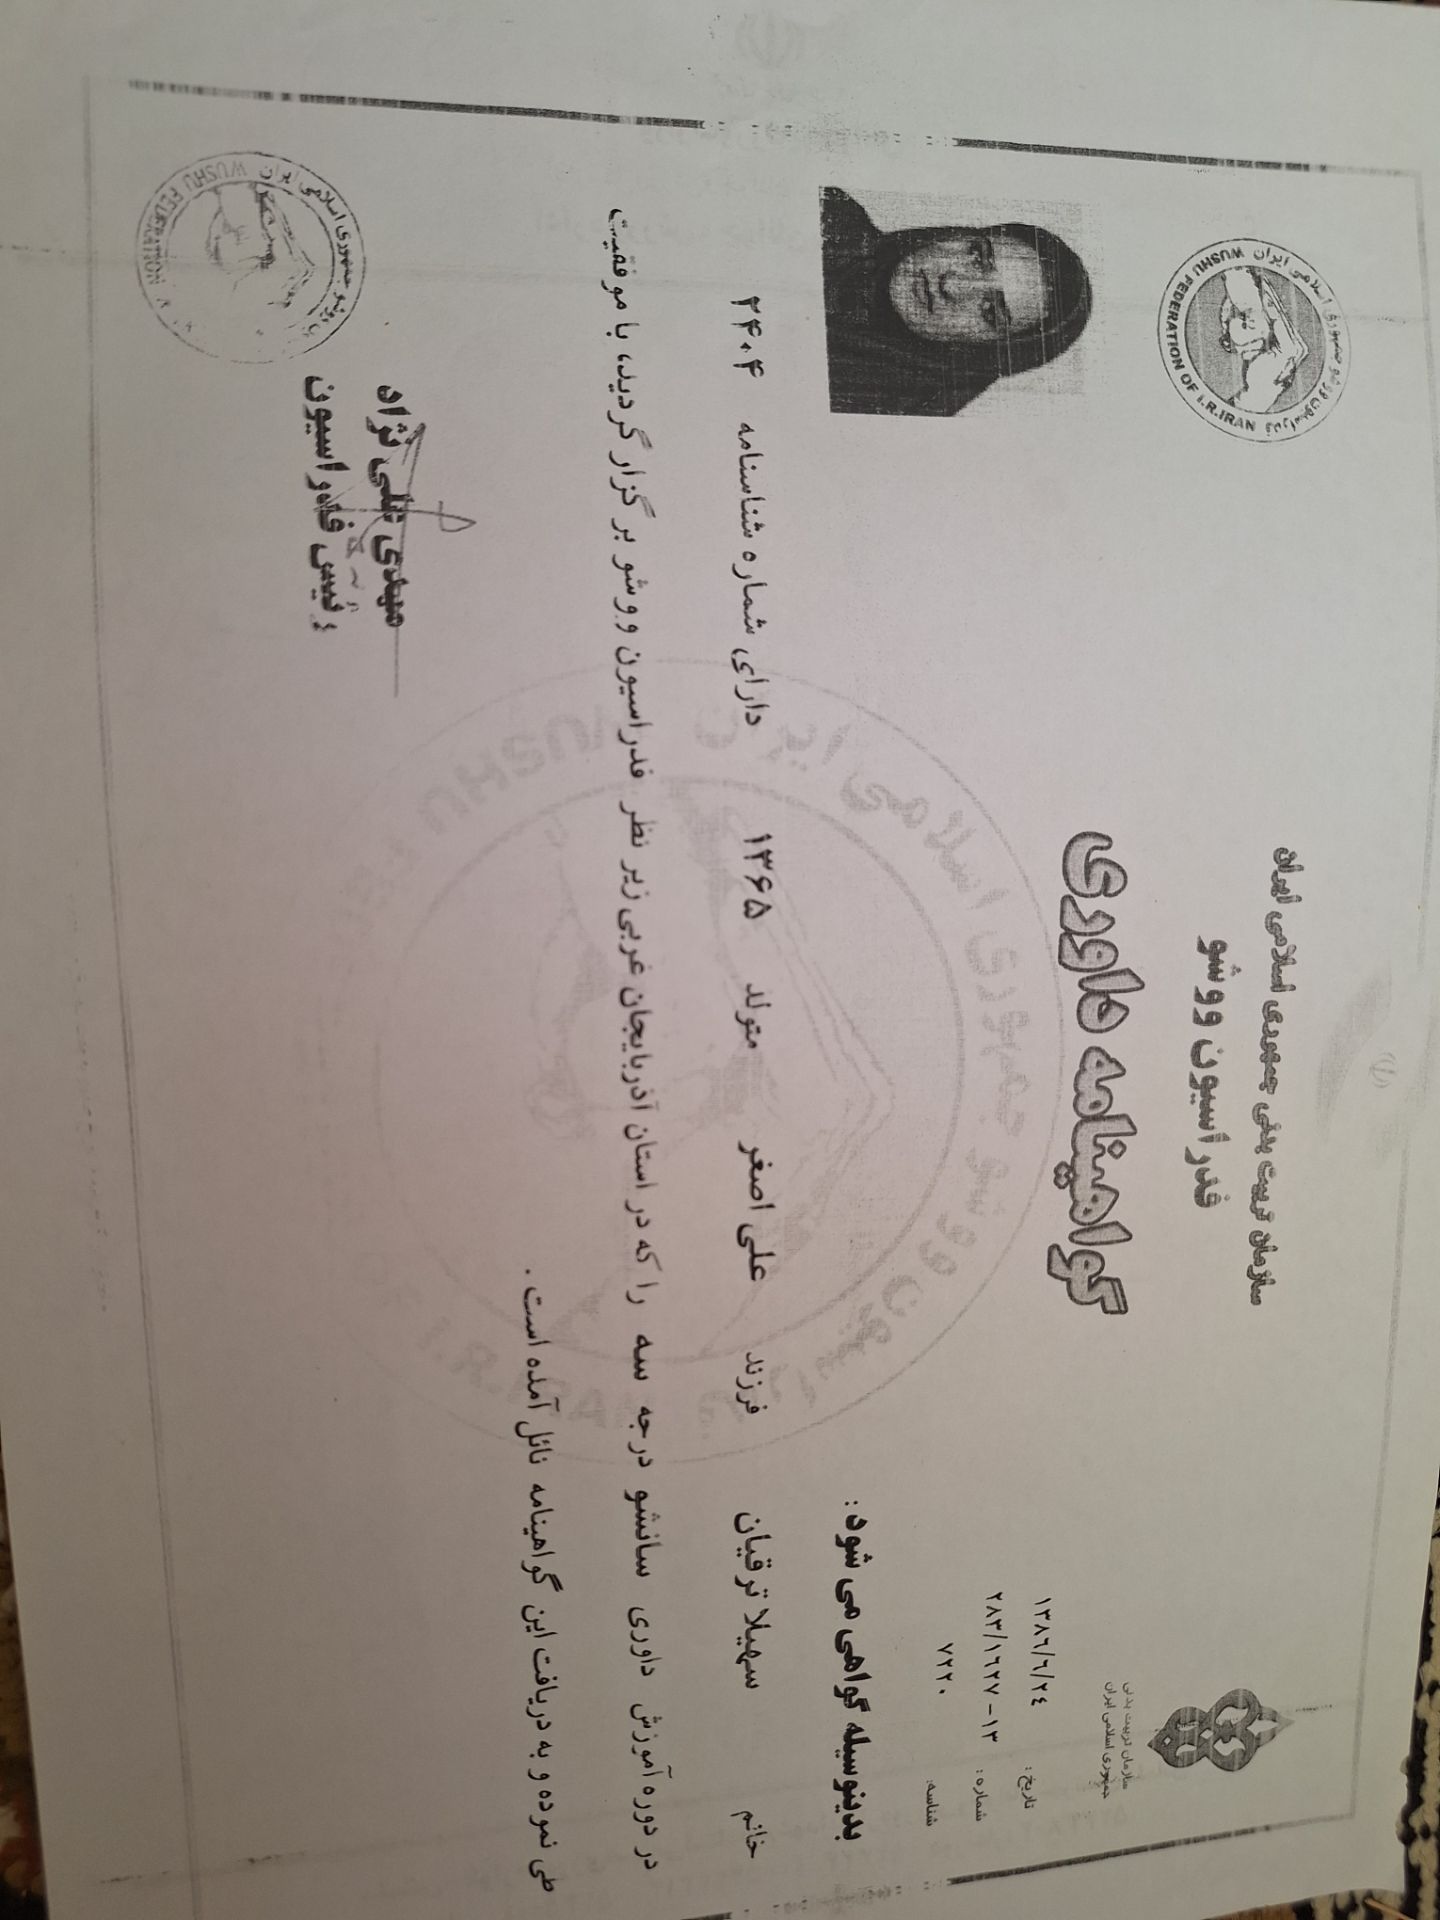 سازمان تربیت بدنی جمهوری اسلامی ایران
فدراسیون ووشو
گواهینامه داوری
فدراسیون ووشو جمهوری اسلامی ایران
WUSHU FEDERATION OF I.R.IRAN
سازمان تربیت بدنی
جمهوری اسلامی ایران
تاریخ: ۱۳۸۶/۶/۲٤
شماره: ۲۸۳/۱٦۲۷-۱۳
شناسه: ۷۲۲۰
بدینوسیله گواهی می شود:
خانم سهیلا ترقیان فرزند علی اصغر متولد ۱۳۶۵ دارای شماره شناسنامه ۲۴۰۴
در دوره آموزش داوری سانشو درجه سه را که در استان آذربایجان غربی زیر نظر فدراسیون ووشو برگزار گردید، با موفقیت
طی نموده و به دریافت این گواهینامه نائل آمده است.
مهدی علی نژاد
رئیس فدراسیون
جمهوری اسلامی ایران
WUSHU FEDERATION